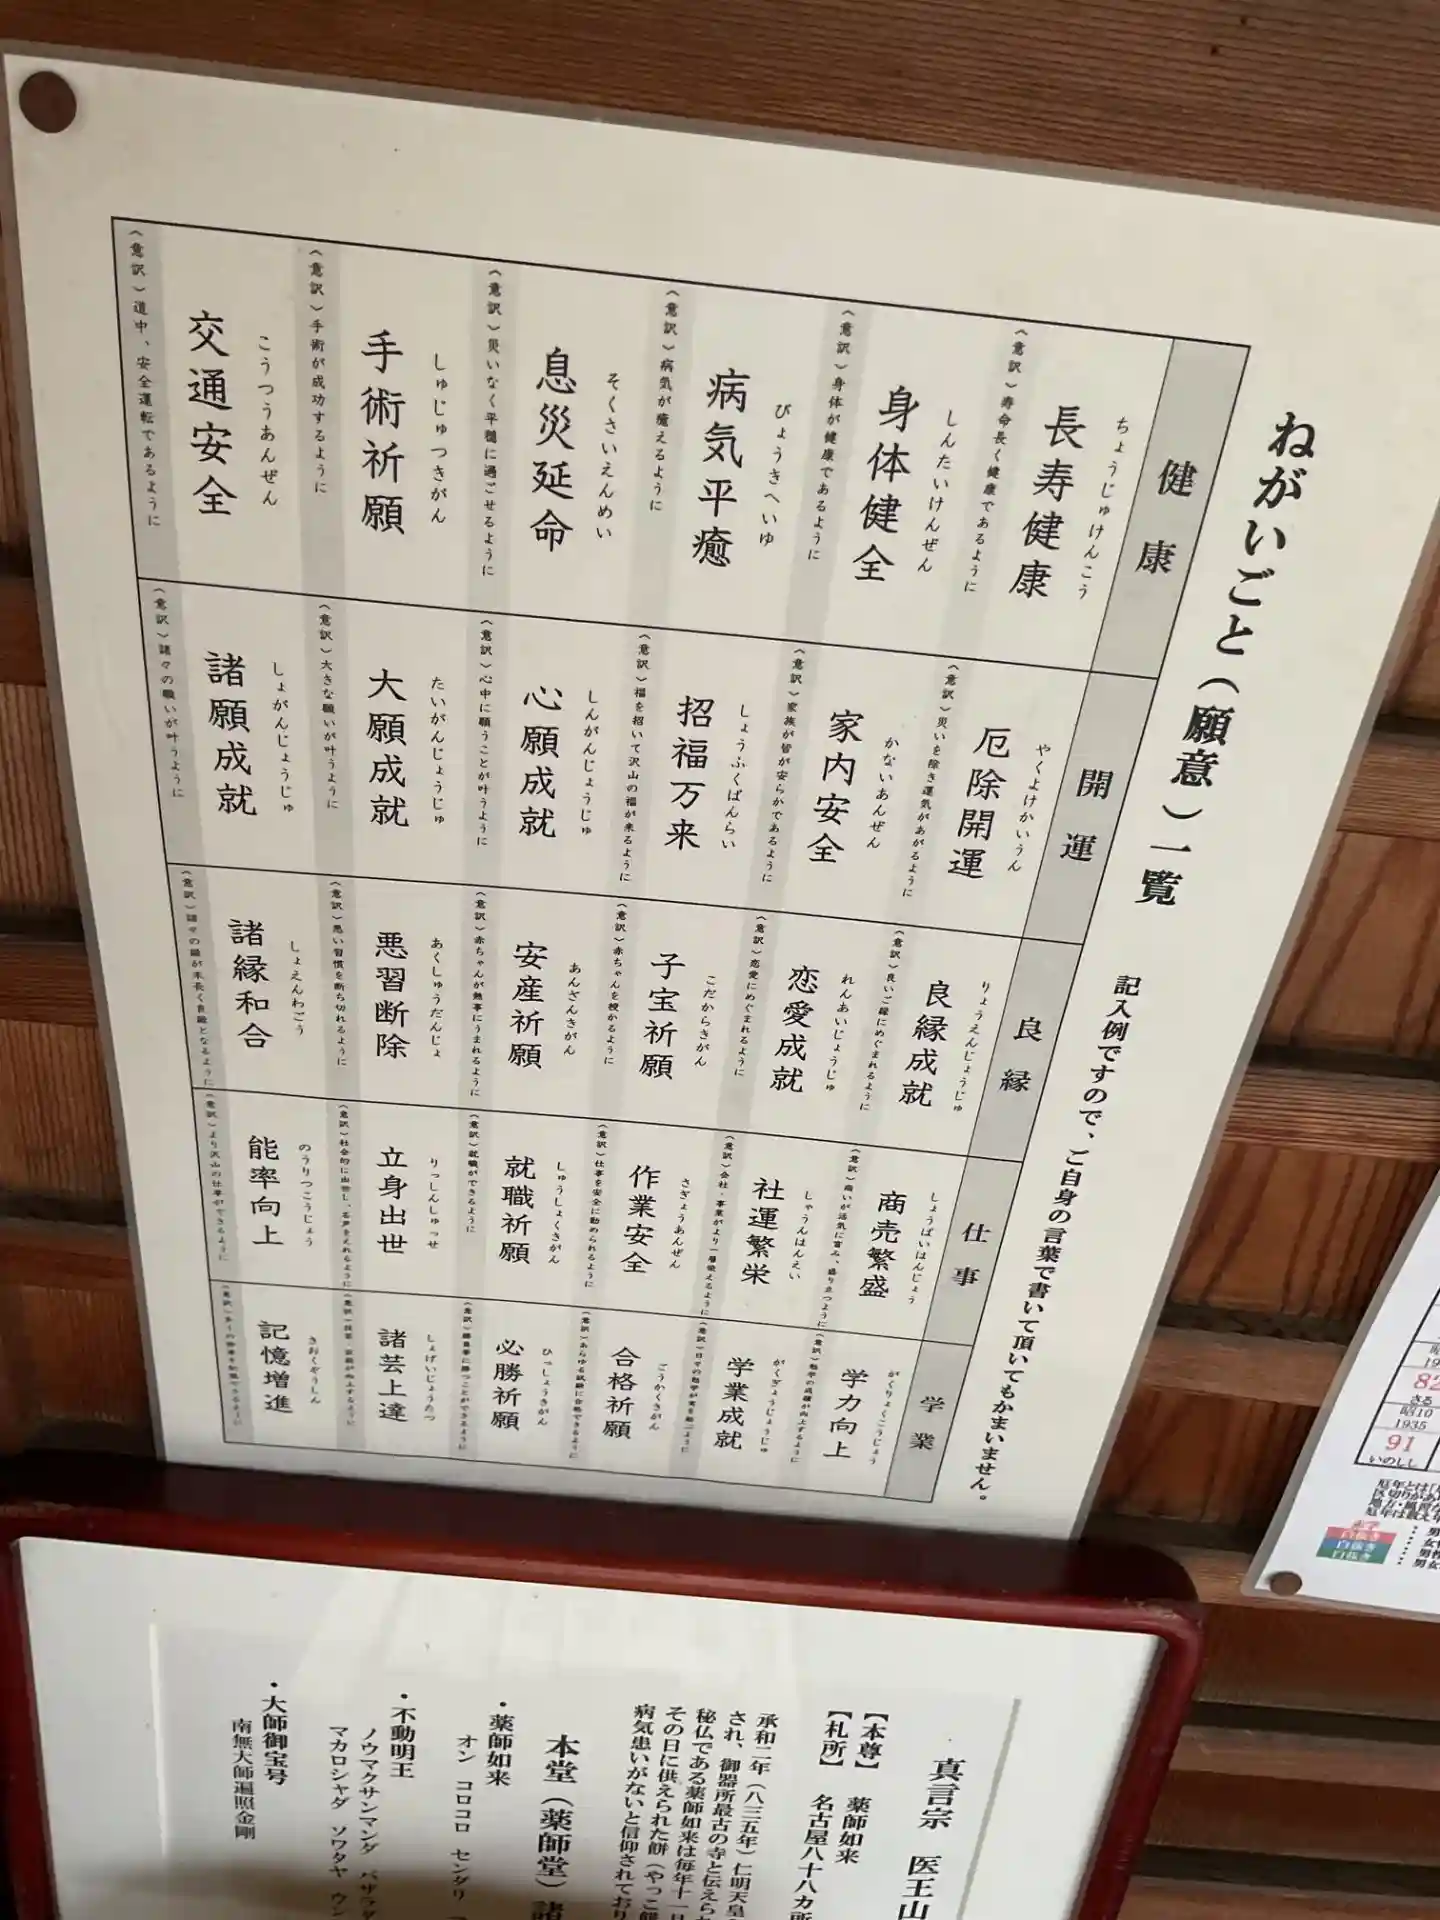 ねがいごと（願意）一覧　記入例ですので、ご自身の言葉で書いて頂いてもかまいません。
健康
ちょうじゅけんこう
長寿健康
（意訳）寿命長く健康であるように
しんたいけんぜん
身体健全
（意訳）身体が健康であるように
びょうきへいゆ
病気平癒
（意訳）病気が癒えるように
そくさいえんめい
息災延命
（意訳）災いなく平穏に過ごせるように
しゅじゅつきがん
手術祈願
（意訳）手術が成功するように
こうつうあんぜん
交通安全
（意訳）道中、安全運転であるように
開運
やくよけかいうん
厄除開運
（意訳）災いを除き運気があがるように
かないあんぜん
家内安全
（意訳）家族が皆が安らかであるように
しょうふくばんらい
招福万来
（意訳）福を招いて沢山の福が来るように
しんがんじょうじゅ
心願成就
（意訳）心中に願うことが叶うように
たいがんじょうじゅ
大願成就
（意訳）大きな願いが叶うように
しょがんじょうじゅ
諸願成就
（意訳）諸々の願いが叶うように
良縁
りょうえんじょうじゅ
良縁成就
（意訳）良いご縁にめぐまれるように
れんあいじょうじゅ
恋愛成就
（意訳）恋愛にめぐまれるように
こだからきがん
子宝祈願
（意訳）赤ちゃんを授かるように
あんざんきがん
安産祈願
（意訳）赤ちゃんが無事にうまれるように
あくしゅうだんじょ
悪習断除
（意訳）悪い習慣を断ち切れるように
しょえんわごう
諸縁和合
（意訳）諸々の縁が末長く良縁となるように
仕事
しょうばいはんじょう
商売繁盛
（意訳）商いが活気に富み、盛り立つように
しゃうんはんえい
社運繁栄
（意訳）会社・事業がより一層栄えるように
さぎょうあんぜん
作業安全
（意訳）仕事を安全に勤められるように
しゅうしょくきがん
就職祈願
（意訳）就職ができるように
りっしんしゅっせ
立身出世
（意訳）社会的に出世し、名声をえれるように
のうりつこうじょう
能率向上
（意訳）より沢山の仕事ができるように
学業
がくりょくこうじょう
学力向上
（意訳）勉学の成績が向上するように
がくぎょうじょうじゅ
学業成就
（意訳）日々の勉学が実を結ぶように
ごうかくきがん
合格祈願
（意訳）あらゆる試験に合格できるように
ひっしょうきがん
必勝祈願
（意訳）勝負事に勝つことができるように
しょげいじょうたつ
諸芸上達
（意訳）技芸・芸能が向上するように
きおくぞうしん
記憶増進
真言宗　医王山
【本尊】　薬師如来
【札所】　名古屋八十八カ所
承和二年（八三五年）仁明天皇
され、御器所最古の寺と伝えら
秘仏である薬師如来は毎年十一
その日に供えられた餅（やっこ餅
病気患いがないと信仰されており
本堂（薬師堂）諸
・薬師如来
オン　コロコロ　センダリ
・不動明王
ノウマクサンマンダ　バザラダ
マカロシャダ　ソワタヤ　ウン
・大師御宝号
南無大師遍照金剛
82
さる
昭10
1935
91
いのしし
赤字
白抜き
白抜き
白抜き